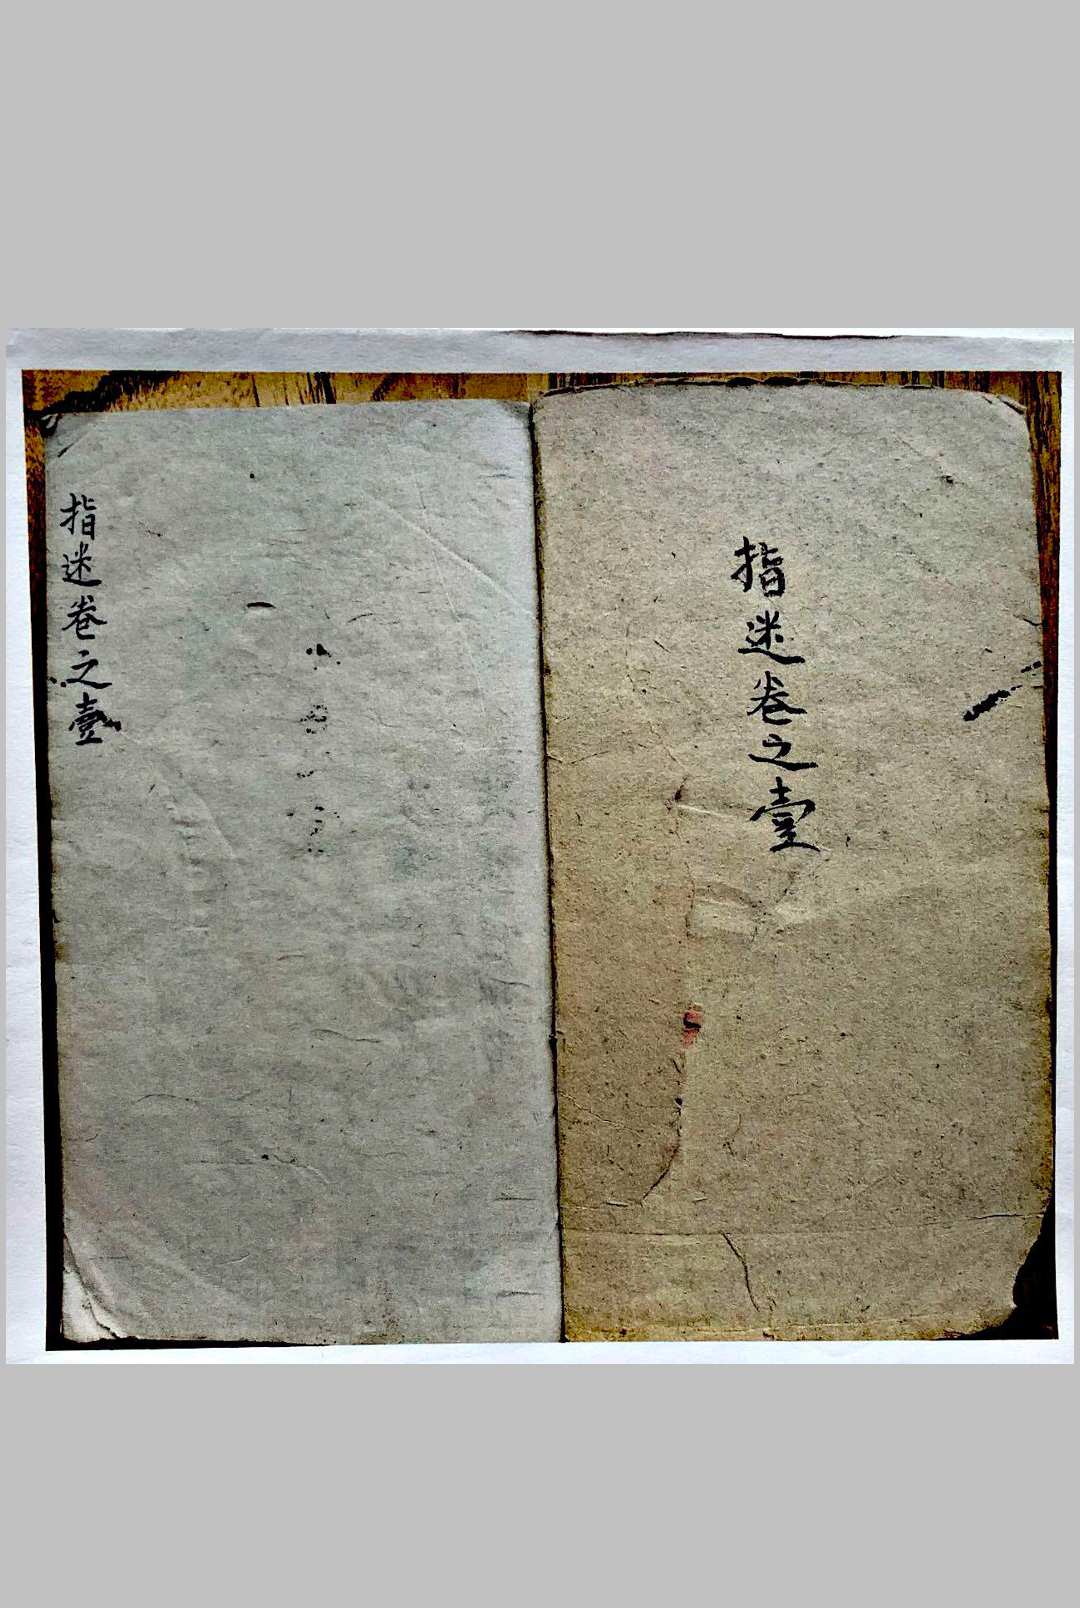 指迷卷之壹
指迷卷之壹